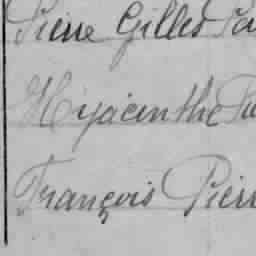 Pierre Gilles
Hyacinthe
François Pierr